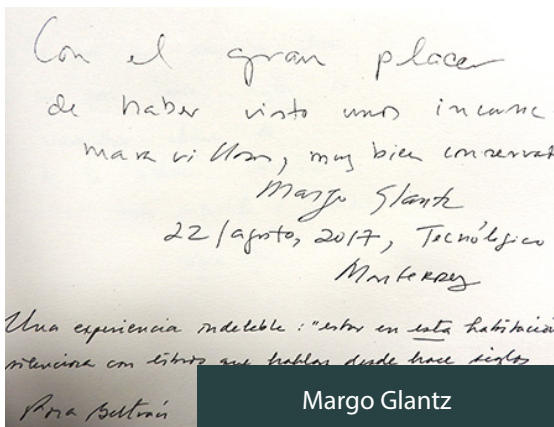 Con el gran placer
de haber visto unos incuna
maravillosos, muy bien conservad
Margo Glantz
22/agosto, 2017, Tecnológico
Monterrey
Una experiencia indeleble: "estar en esta habitación
silenciosa con libros que hablan desde hace siglos
Rosa Beltrán
Margo Glantz